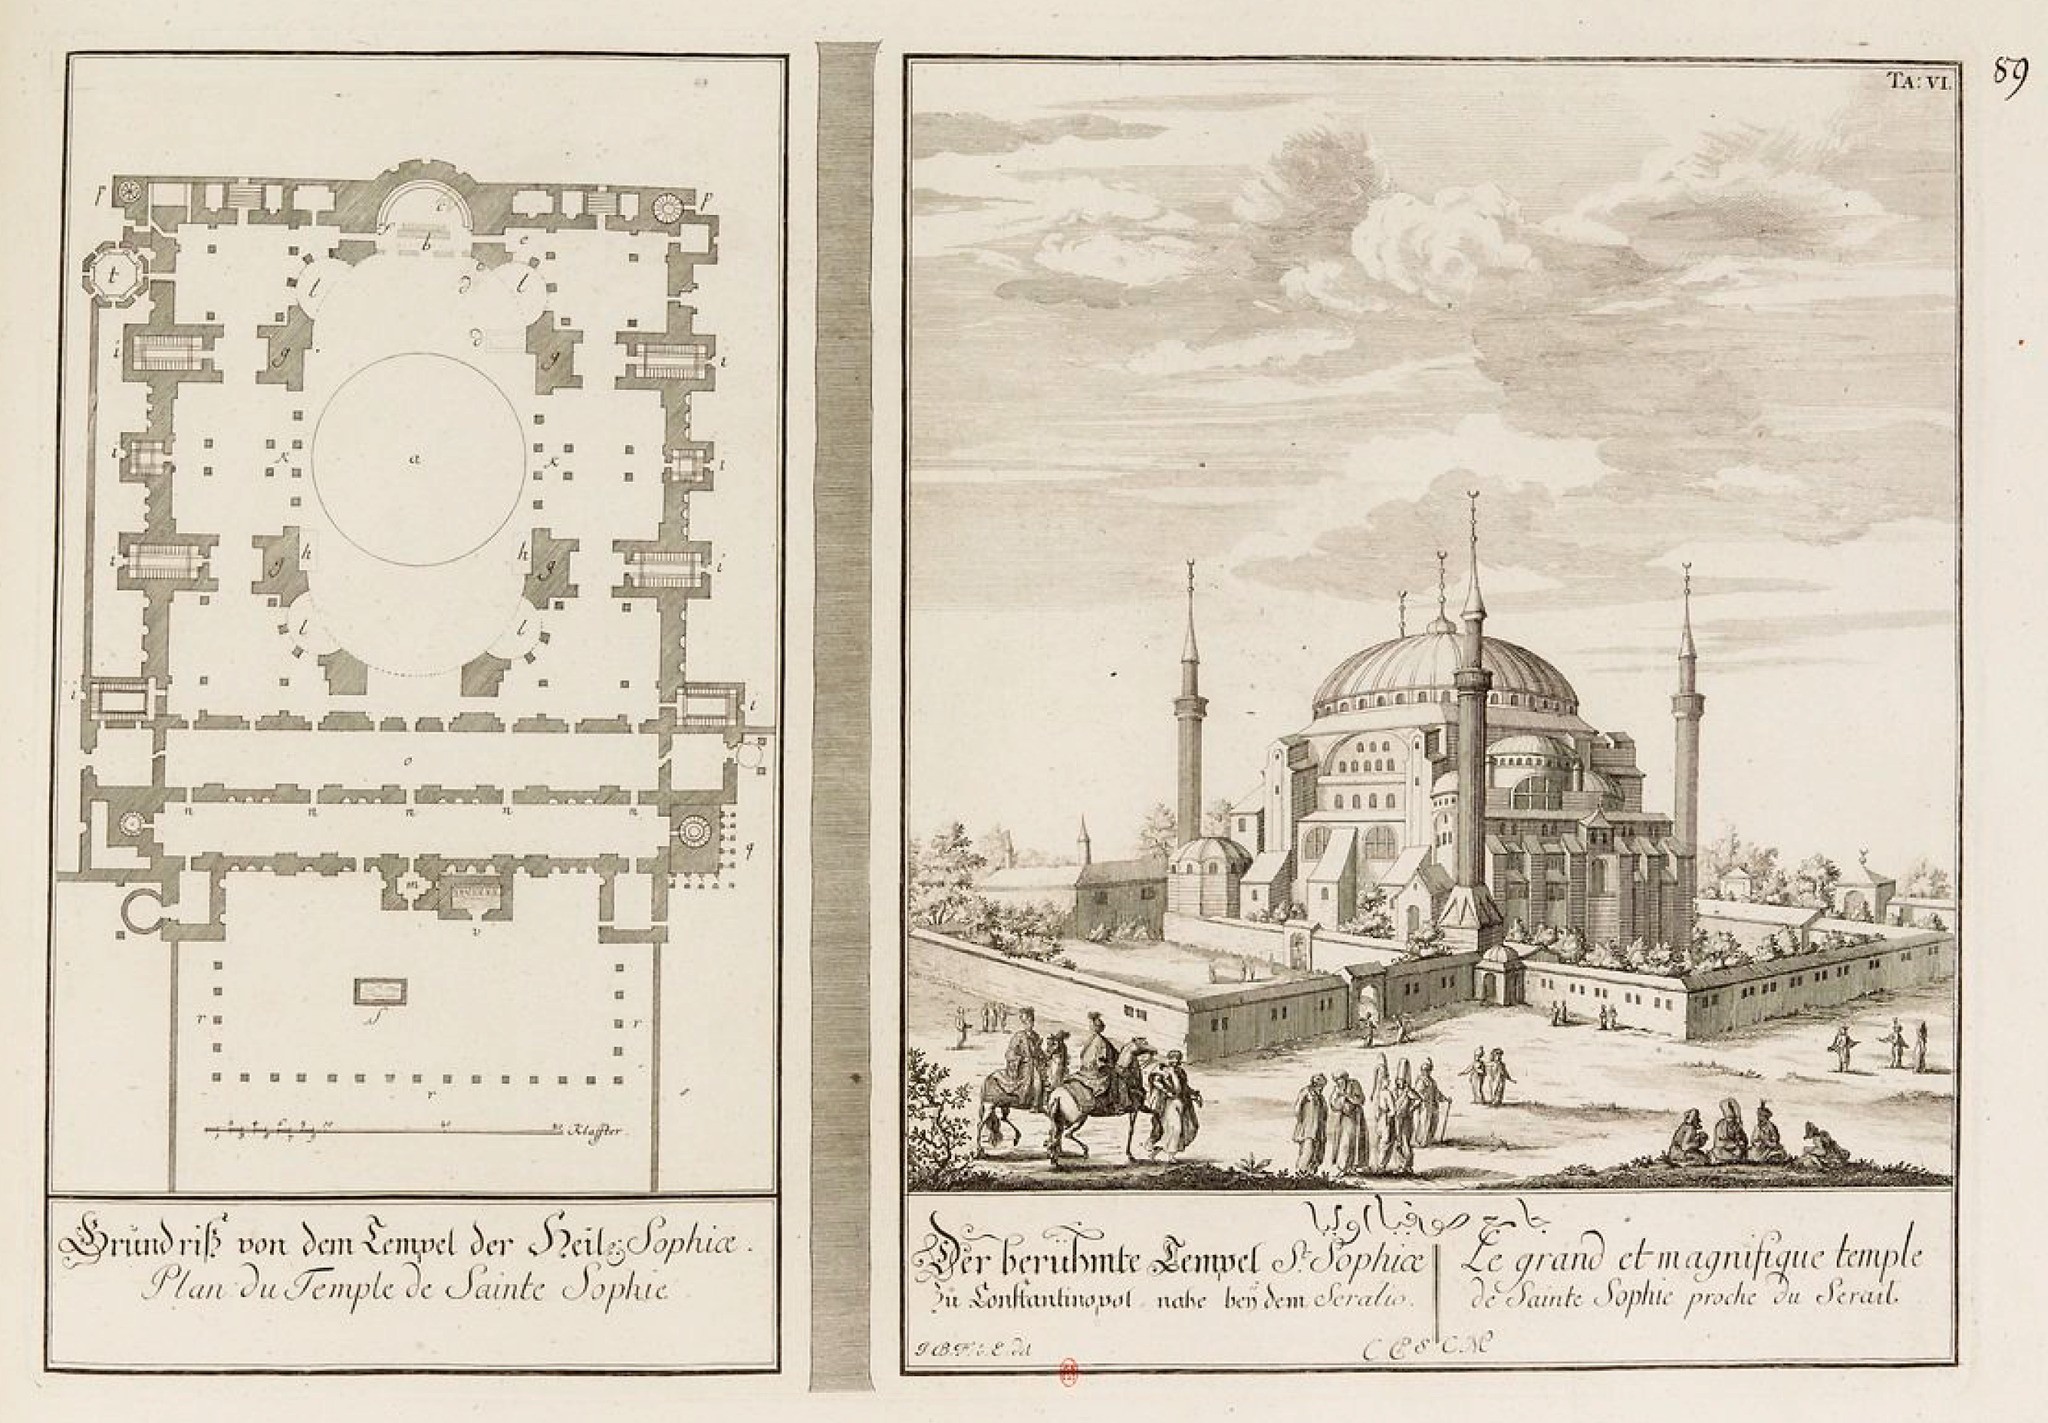 TA: VI.
89
p
p
c
f
b
e
t
l
d
l
i
g
d
g
i
i
k
a
k
i
i
g
h
h
g
i
l
l
i
i
o
n n n n n
q
m
v
r
f
r
r
Klaffter.
Grundriß von dem Tempel der Heil: Sophiæ.
Plan du Temple de Sainte Sophie
جامع صوفيا اوليا
Der berühmte Tempel St. Sophiæ
zu Constantinopol nahe bey dem Seralio.
Le grand et magnifique temple
de Sainte Sophie proche du Serail.
I B F. v. E. del
C P S C M